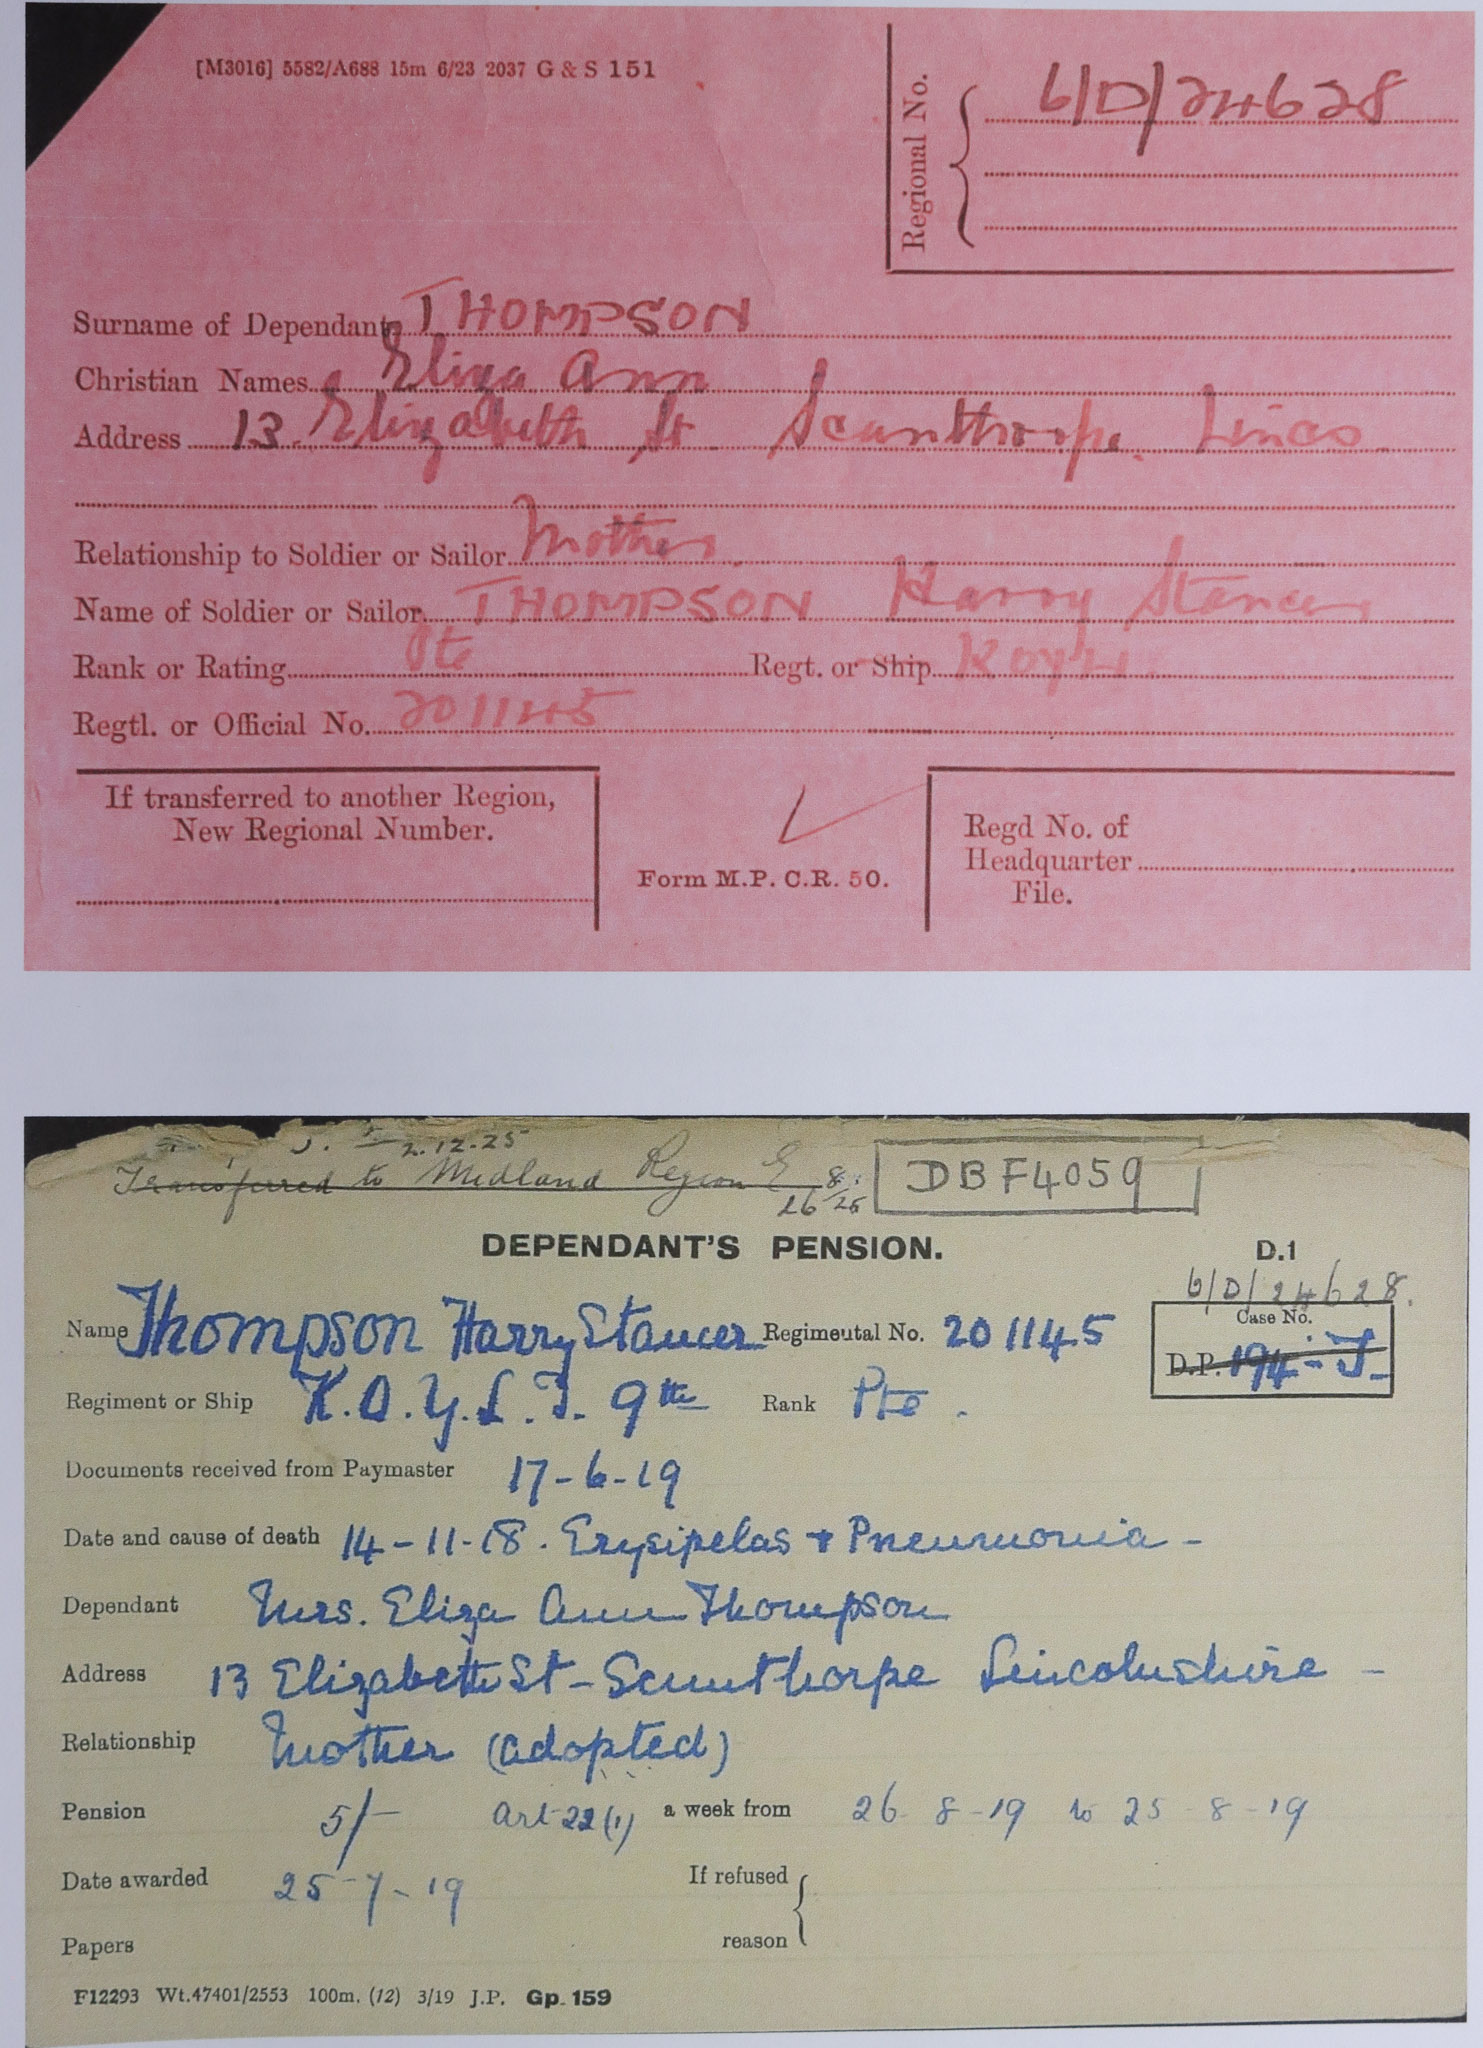 [M3016] 5582/A688 15m 6/23 2037 G & S 151
Regional No. 6/D/24628
Surname of Dependant THOMPSON
Christian Names Eliza Ann
Address 13. Elizabeth St Scunthorpe. Lincs
Relationship to Soldier or Sailor Mother
Name of Soldier or Sailor THOMPSON Harry Stancer
Rank or Rating Pte Regt. or Ship KOYLI
Regtl. or Official No. 201145
If transferred to another Region,
New Regional Number.
Form M.P. C.R. 50.
Regd No. of
Headquarter
File.
2.12.25
Transferred to Midland Region E 26/8/25
DBF4059
DEPENDANT'S PENSION. D.1
6/D/24628.
Name Thompson Harry Stancer Regimental No. 201145
Case No.
D.P. 194-T
Regiment or Ship K.O.Y.L.I. 9th Rank Pte.
Documents received from Paymaster 17-6-19
Date and cause of death 14-11-18. Erysipelas & Pneumonia -
Dependant Mrs. Eliza Ann Thompson
Address 13 Elizabeth St - Scunthorpe Lincolnshire -
Relationship Mother (adopted)
Pension 5/- Art 22(1) a week from 26-8-19 to 25-8-19
Date awarded 25-7-19 If refused
reason
Papers
F12293 Wt.47401/2553 100m. (12) 3/19 J.P. Gp. 159